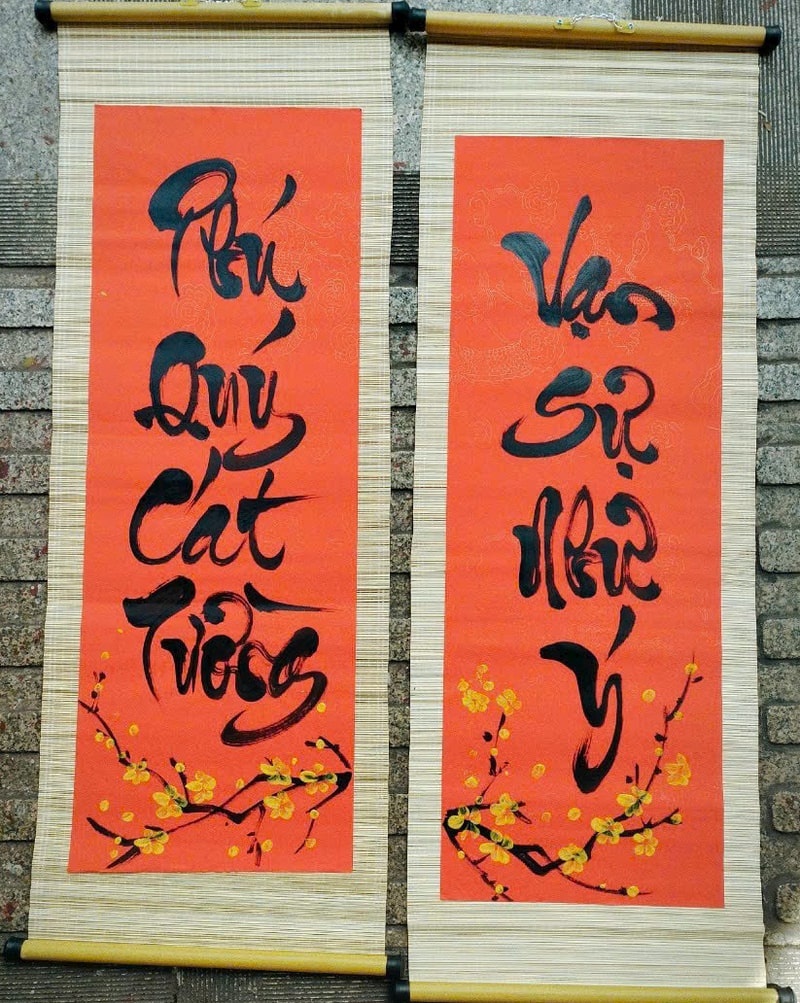 Phú
Quý
Cát
Tường
Vạn
Sự
Như
Ý